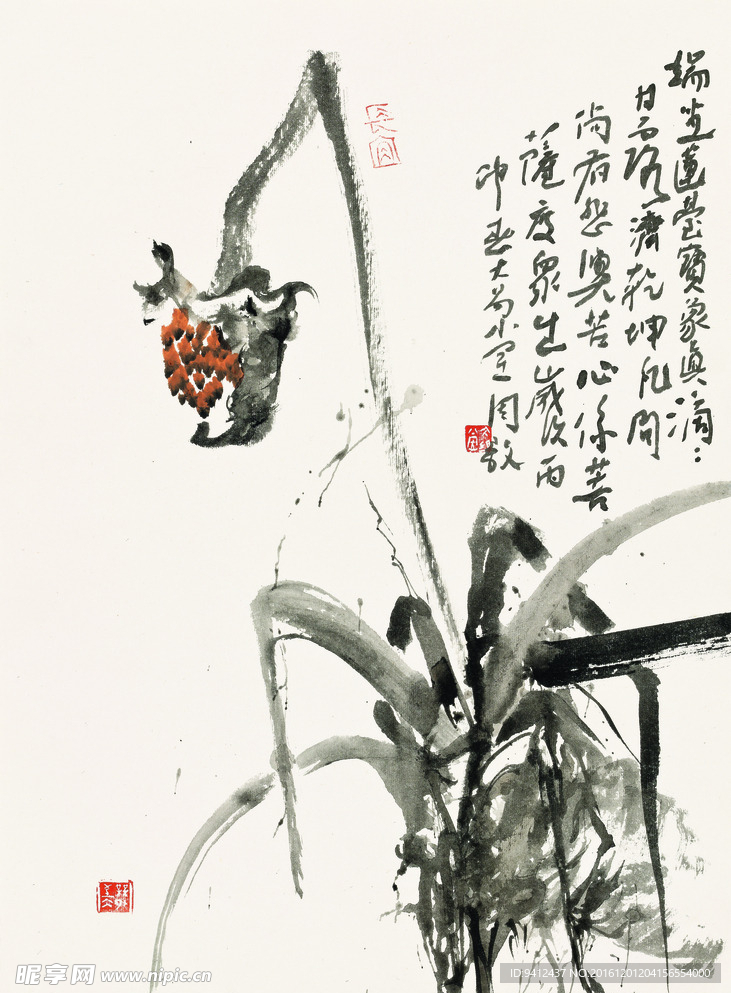 端坐蓮臺寶象真滴:
甘露濟乾坤凡間
尚有怨與苦心係菩
薩度眾生歲次丙
申春大
長宜
昵享网 www.nipic.cn
ID:9412437 NO:20161201204156554000